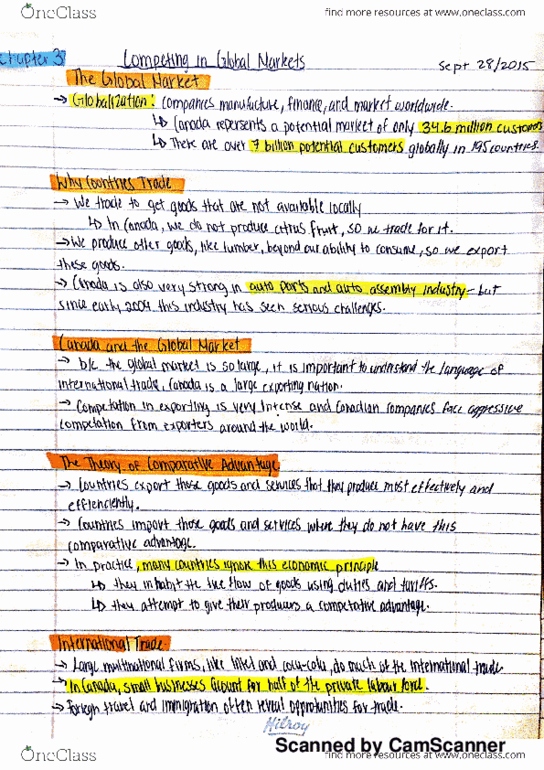 OneClass
find more resources at www.oneclass.com
Chapter 3
Competing in Global Markets
Sept 28/2015
The Global Market
→ Globalization: companies manufacture, finance, and market worldwide.
↳ Canada repersents a potential market of only 34.6 million customers
↳ There are over 7 billion potential customers globally in 195 countries.
Why Countries Trade
→ We trade to get goods that are not available locally
↳ In Canada, we do not produce citrus fruit, so we trade for it.
→ We produce other goods, like lumber, beyond our ability to consume, so we export
these goods.
→ Canada is also very strong in auto parts and auto assembly industry - but
since early 2004 this industry has seen serious challenges.
Canada and the Global Market
→ b/c the global market is so large, it is important to understand the language of
international trade, Canada is a large exporting nation.
→ Competation in exporting is very intense and Canadian companies face aggressive
competation from exporters around the world.
The Theory of Comparative Advantage
→ Countries export those goods and services that they produce most effectively and
effienciently.
→ Countries import those goods and services where they do not have this
comparative advantage.
→ In practice, many countries ignore this economic principle
↳ they inhabit the free flow of goods using duties and tariffs.
↳ they attempt to give their producers a competative advantage.
International Trade
→ Large multinational firms, like Intel and coca-cola, do much of the international trade
→ In Canada, small businesses account for half of the private labour force.
→ Foreign travel and immigration often reveal opportunities for trade.
Hilroy
Scanned by CamScanner
OneClass
find more resources at www.oneclass.com